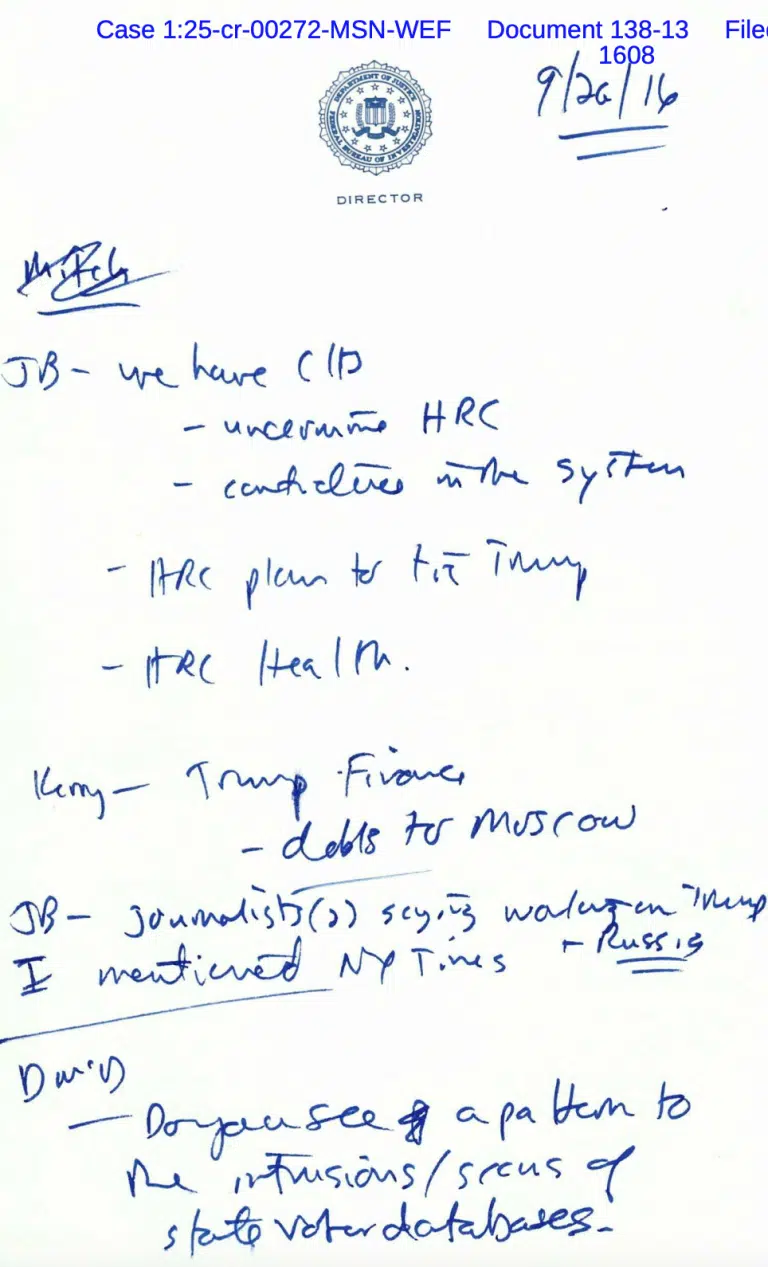 Case 1:25-cr-00272-MSN-WEF Document 138-13 Filed
1608
9/26/16
DEPARTMENT OF JUSTICE
FEDERAL BUREAU OF INVESTIGATION
DIRECTOR
JB - we have CIA
- undermine HRC
- candidates in the system
- HRC plan to tie Trump
- HRC Health.
Kerry - Trump Finance
- debts to Moscow
JB - journalists(s) saying working on Trump
+ Russia
I mentioned NY Times
David
- Do you see a pattern to
the intrusions/scans of
state voter databases.